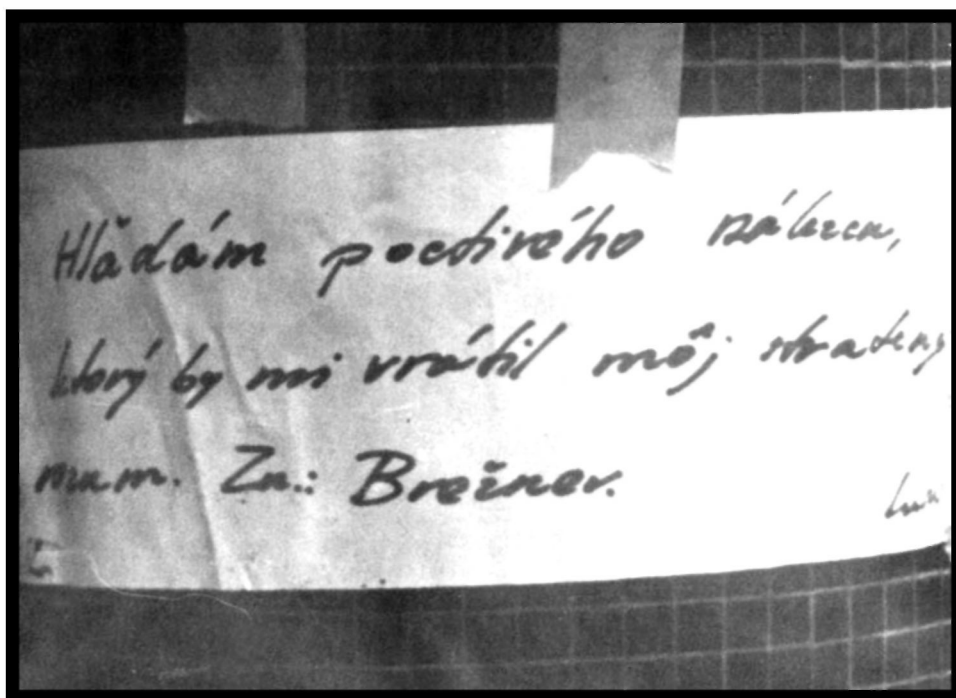 Hľadám poctivého nálezcu,
ktorý by mi vrátil môj stratený
rozum. Zn.: Brežnev.